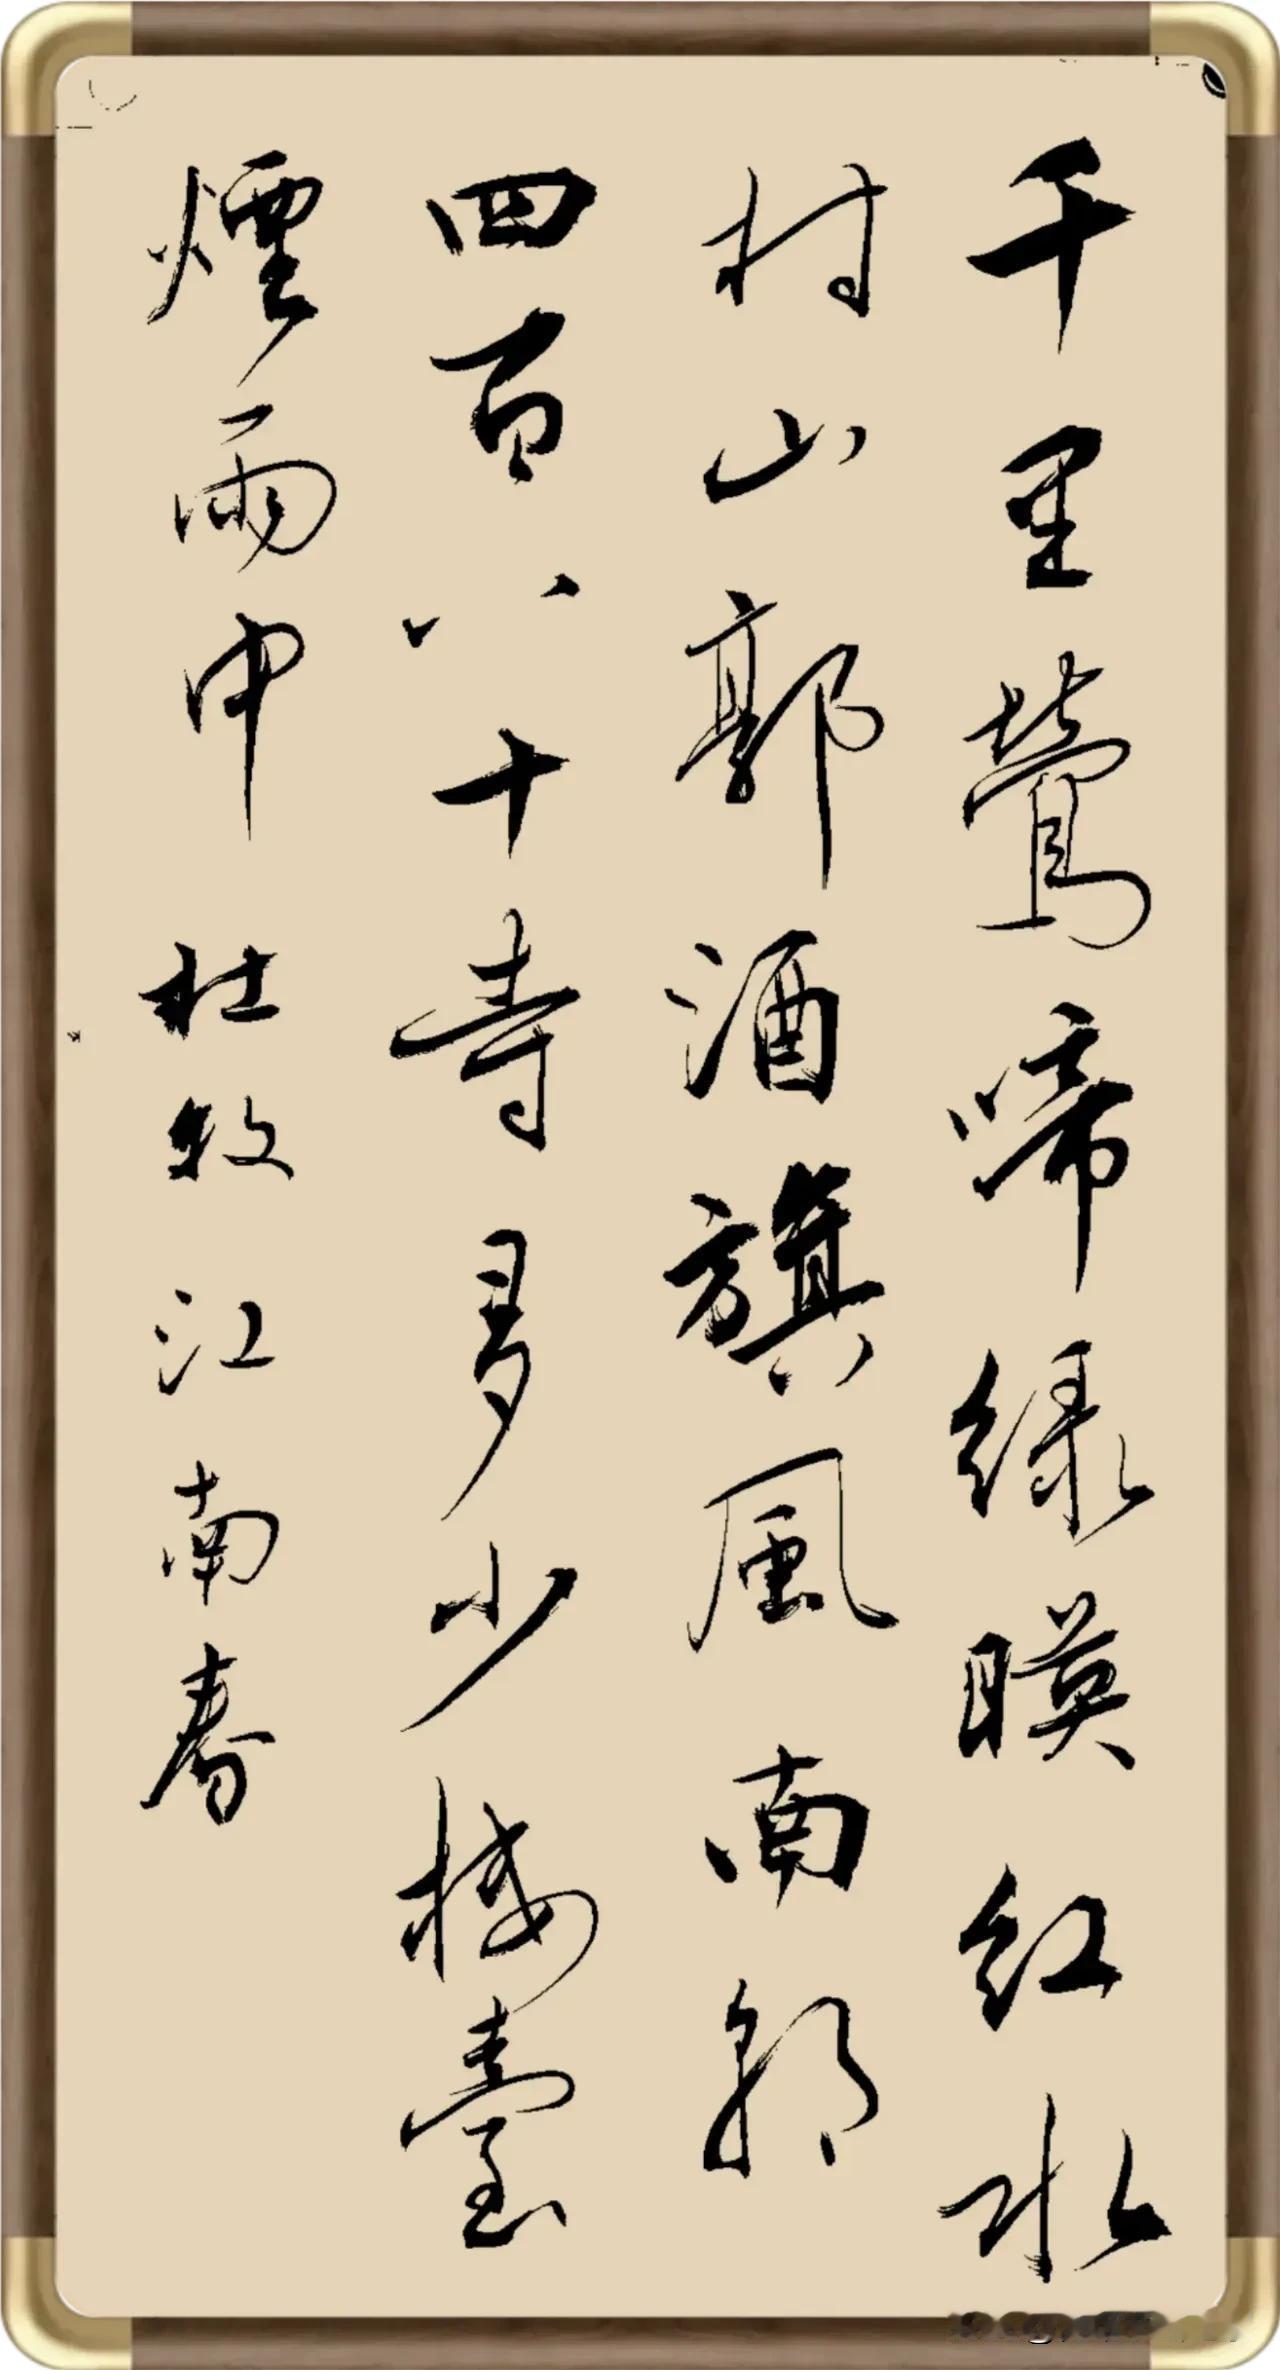 千里鶯啼绿暎红水
村山郭酒旗風南朝
四百八十寺多少楼臺
煙雨中 杜牧 江南春